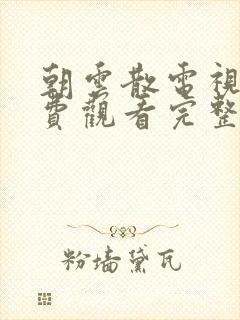 朝雲散電視
費觀看完整
粉墙黛瓦